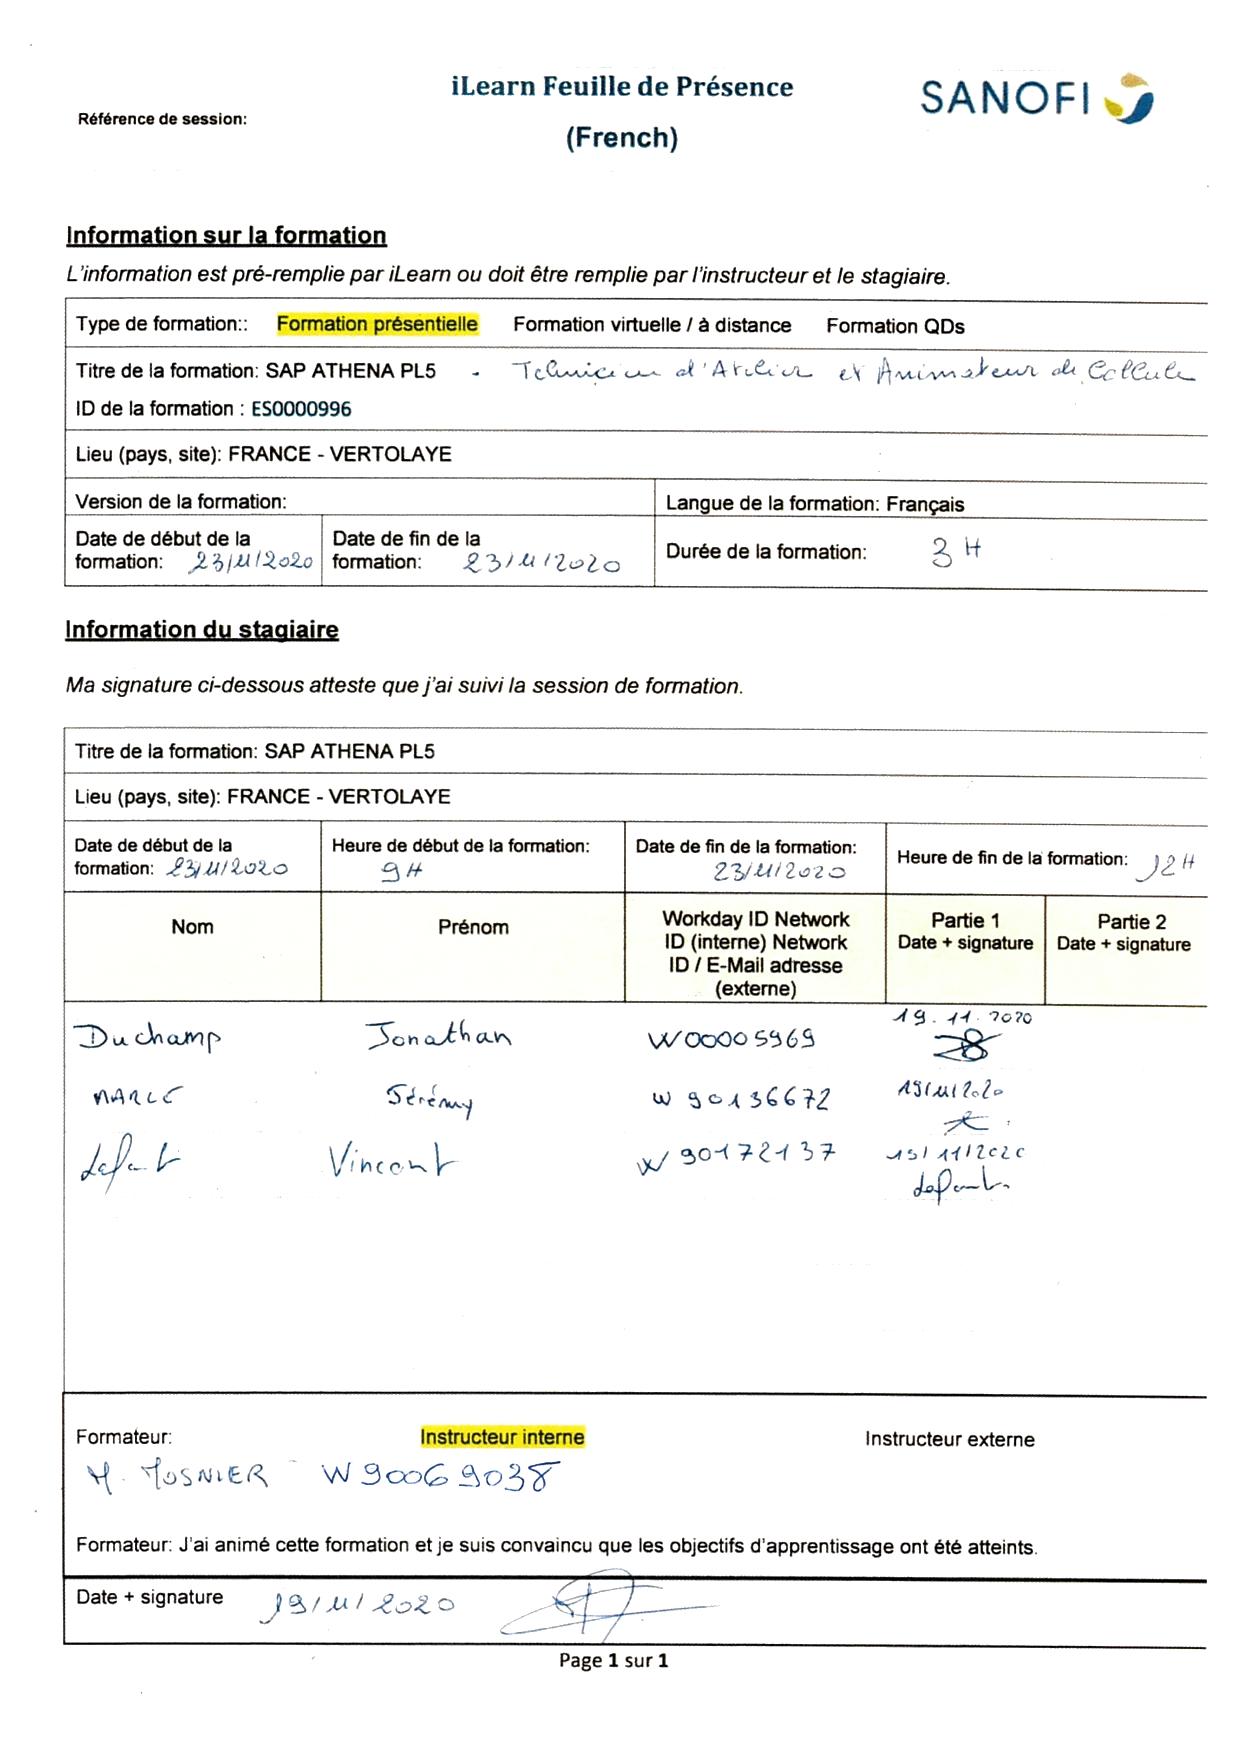 iLearn Feuille de Présence
SANOFI
Référence de session:
(French)
Information sur la formation
L'information est pré-remplie par iLearn ou doit être remplie par l'instructeur et le stagiaire.
Type de formation:: Formation présentielle Formation virtuelle / à distance Formation QDs
Titre de la formation: SAP ATHENA PL5 - Technicien d'Atelier et Animateur de Cellule
ID de la formation : ES0000996
Lieu (pays, site): FRANCE - VERTOLAYE
Version de la formation:
Langue de la formation: Français
Date de début de la formation: 23/11/2020
Date de fin de la formation: 23/11/2020
Durée de la formation: 3 H
Information du stagiaire
Ma signature ci-dessous atteste que j'ai suivi la session de formation.
Titre de la formation: SAP ATHENA PL5
Lieu (pays, site): FRANCE - VERTOLAYE
Date de début de la formation: 23/11/2020
Heure de début de la formation: 9H
Date de fin de la formation: 23/11/2020
Heure de fin de la formation: 12H
Nom
Prénom
Workday ID Network
ID (interne) Network
ID / E-Mail adresse
(externe)
Partie 1
Date + signature
Partie 2
Date + signature
Duchamp Jonathan W00005969 19.11.2020
MARLE Jérémy W90136672 19/11/2020
Vincent W90172137 19/11/2020
Formateur: Instructeur interne Instructeur externe
M. MOSNIER W90069038
Formateur: J'ai animé cette formation et je suis convaincu que les objectifs d'apprentissage ont été atteints.
Date + signature 19/11/2020
Page 1 sur 1